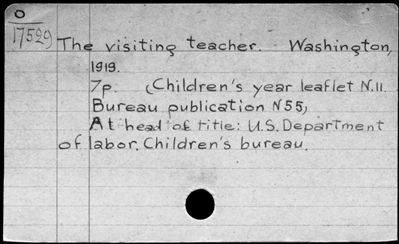 O
17529
The visiting teacher. Washington,
1919.
7p. (Children's year leaflet N.11.
Bureau publication N 55)
At head of title: U.S. Department
of labor. Children's bureau.